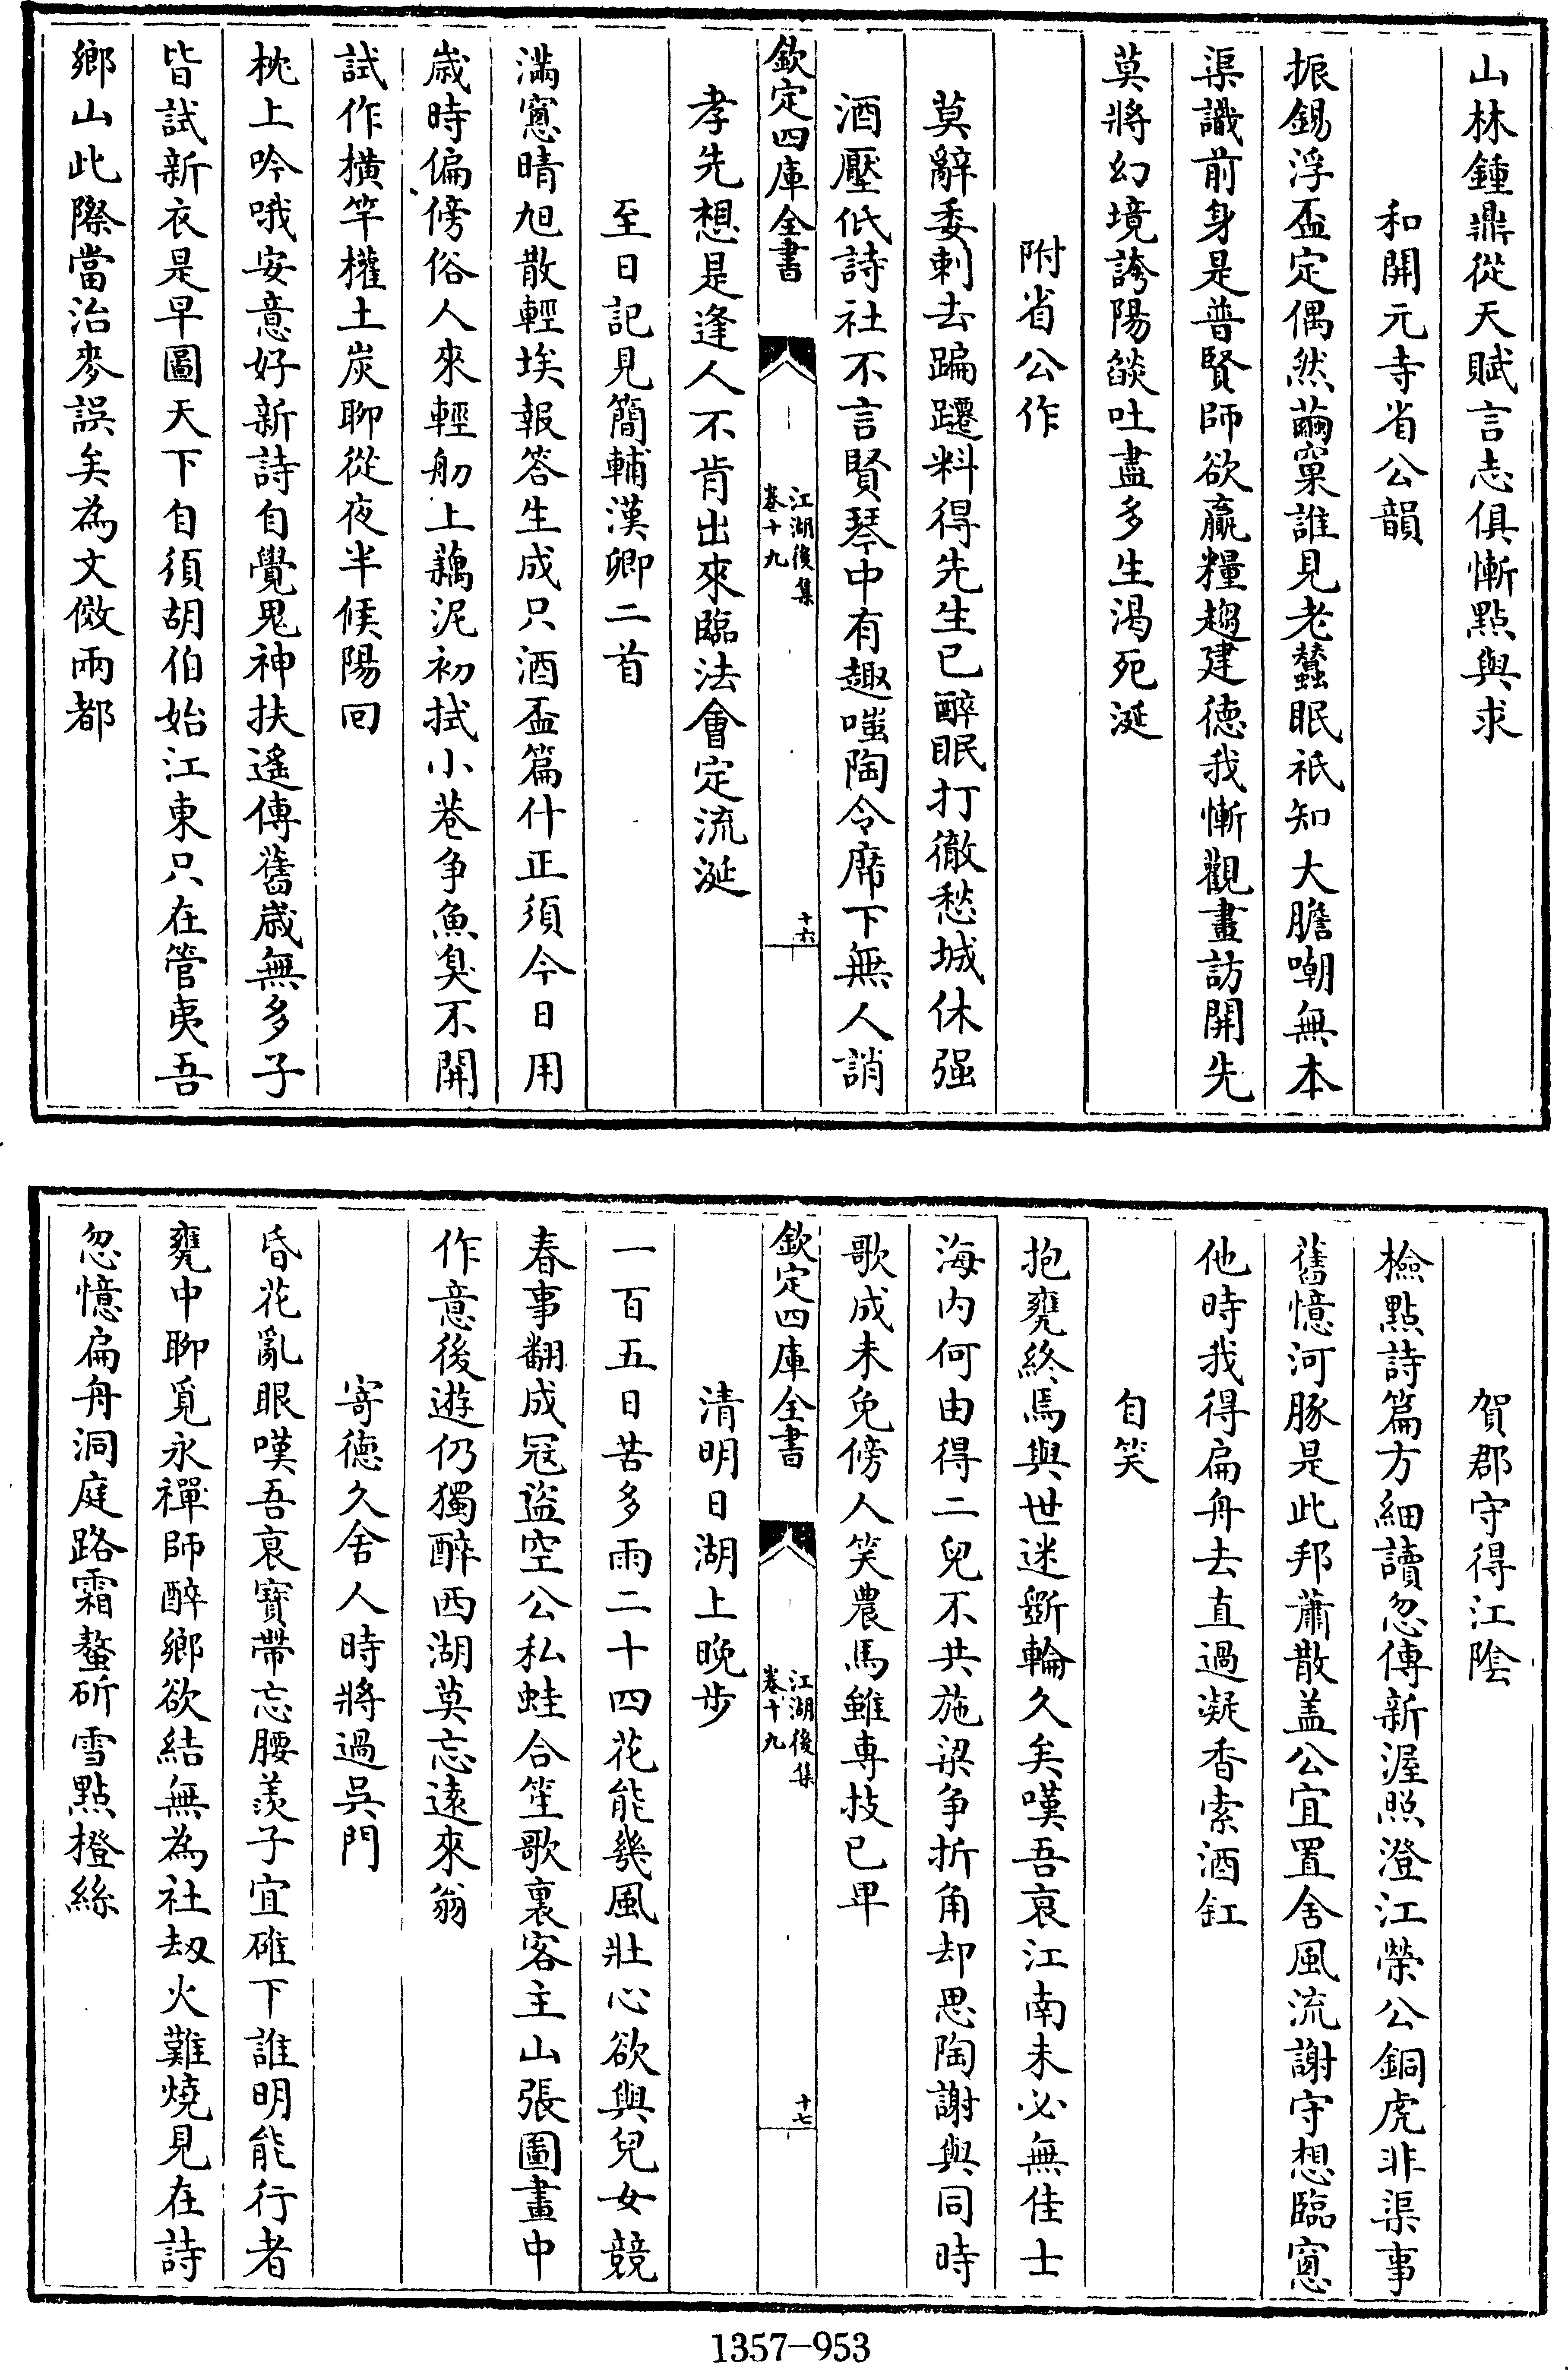 山林鍾鼎從天賦言志俱慚點與求
和開元寺省公韻
振錫浮盃定偶然繭窠誰見老蠶眠祇知大膽嘲無本
渠識前身是普賢師欲贏糧趨建德我慚觀畫訪開先
莫將幻境誇陽燄吐盡多生渴死涎
附省公作
莫辭委刺去蹁躚料得先生已醉眠打徹愁城休强
酒壓低詩社不言賢琴中有趣嗤陶令席下無人誚
欽定四庫全書
江湖後集
卷十九
十六
孝先想是逢人不肯出來臨法會定流涎
至日記見簡輔漢卿二首
滿窻晴旭散輕埃報答生成只酒盃篇什正須今日用
歲時偏傍俗人來輕舠上藕泥初拭小巷争魚臭不開
試作橫竿權土炭聊從夜半候陽回
枕上吟哦安意好新詩自覺鬼神扶遙傳舊歲無多子
皆試新衣是早圖天下自須胡伯始江東只在管夷吾
鄉山此際當治麥誤矣為文倣兩都
賀郡守得江陰
檢點詩篇方細讀忽傳新渥照澄江榮公銅虎非渠事
舊憶河豚是此邦蕭散盖公宜置舍風流謝守想臨窻
他時我得扁舟去直過凝香索酒缸
自笑
抱甕終焉與世迷斲輪久矣嘆吾哀江南未必無佳士
海内何由得二兒不共施梁争折角却思陶謝與同時
歌成未免傍人笑農馬雖専技已卑
欽定四庫全書
江湖後集
卷十九
十七
清明日湖上晚步
一百五日苦多雨二十四花能幾風壯心欲與兒女競
春事翻成冦盜空公私蛙合笙歌裏客主山張圖畫中
作意後遊仍獨醉西湖莫忘遠來翁
寄徳久舍人時將過吳門
昏花亂眼嘆吾哀寳帶忘腰羨子宜碓下誰明能行者
甕中聊覓永禪師醉鄉欲結無為社刼火難燒見在詩
忽憶扁舟洞庭路霜螯斫雪點橙絲
1357-953